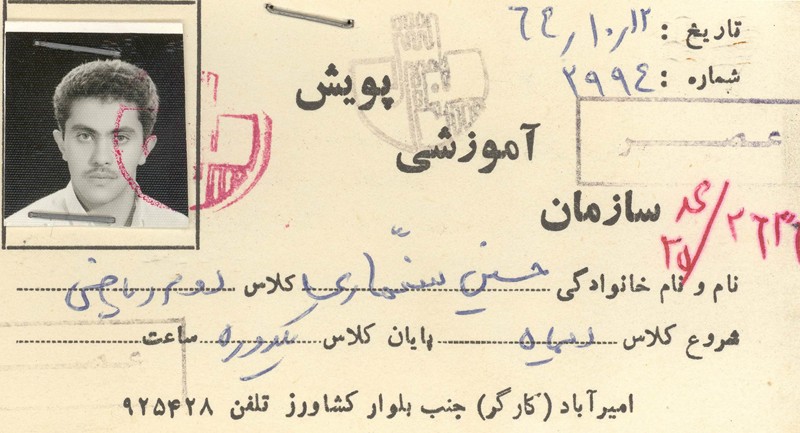 تاریخ : ۶۴/۱۰/۱۲
شماره : ۲۹۹۴
پویش
آموزشی
سازمان
عصر
نام و نام خانوادگی حسین سنماری کلاس دوم ریاضی
شروع کلاس دیماه پایان کلاس یکدوره ساعت
امیرآباد (کارگر) جنب بلوار کشاورز تلفن ۹۲۵۴۲۸